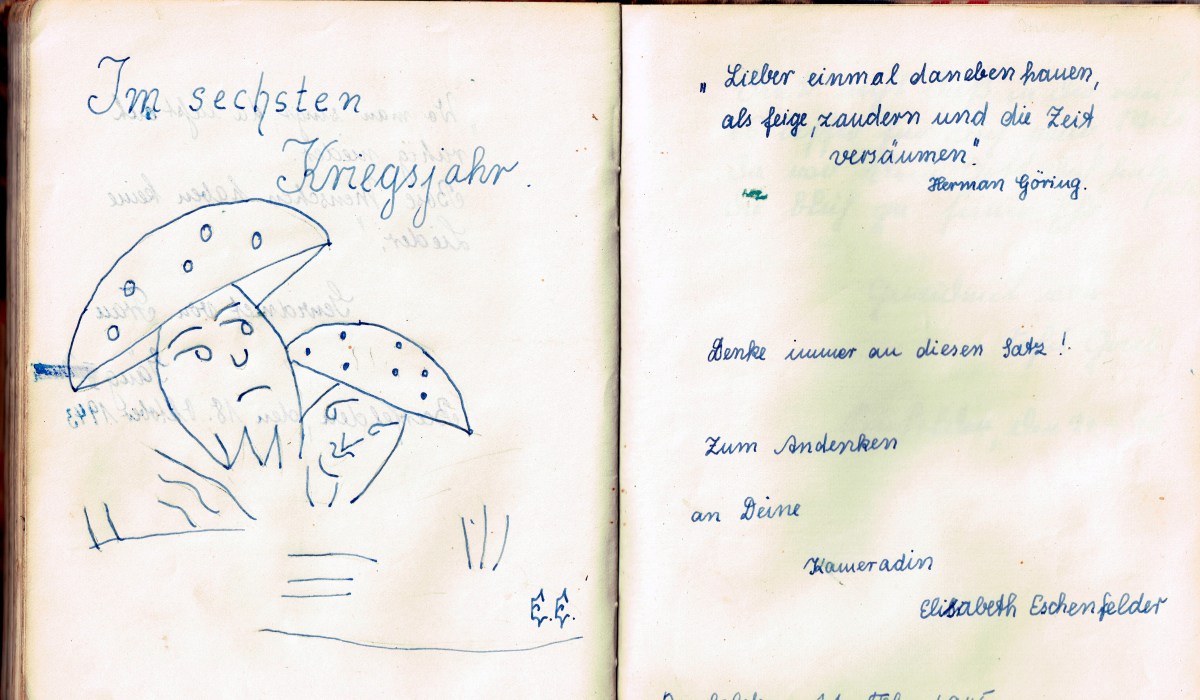 Im sechsten
Kriegsjahr.
E.E.
„Lieber einmal danebenhauen,
als feige, zaudern und die Zeit
versäumen."
Herman Göring.
Denke immer an diesen Satz!
Zum Andenken
an Deine
Kameradin
Elisabeth Eschenfelder